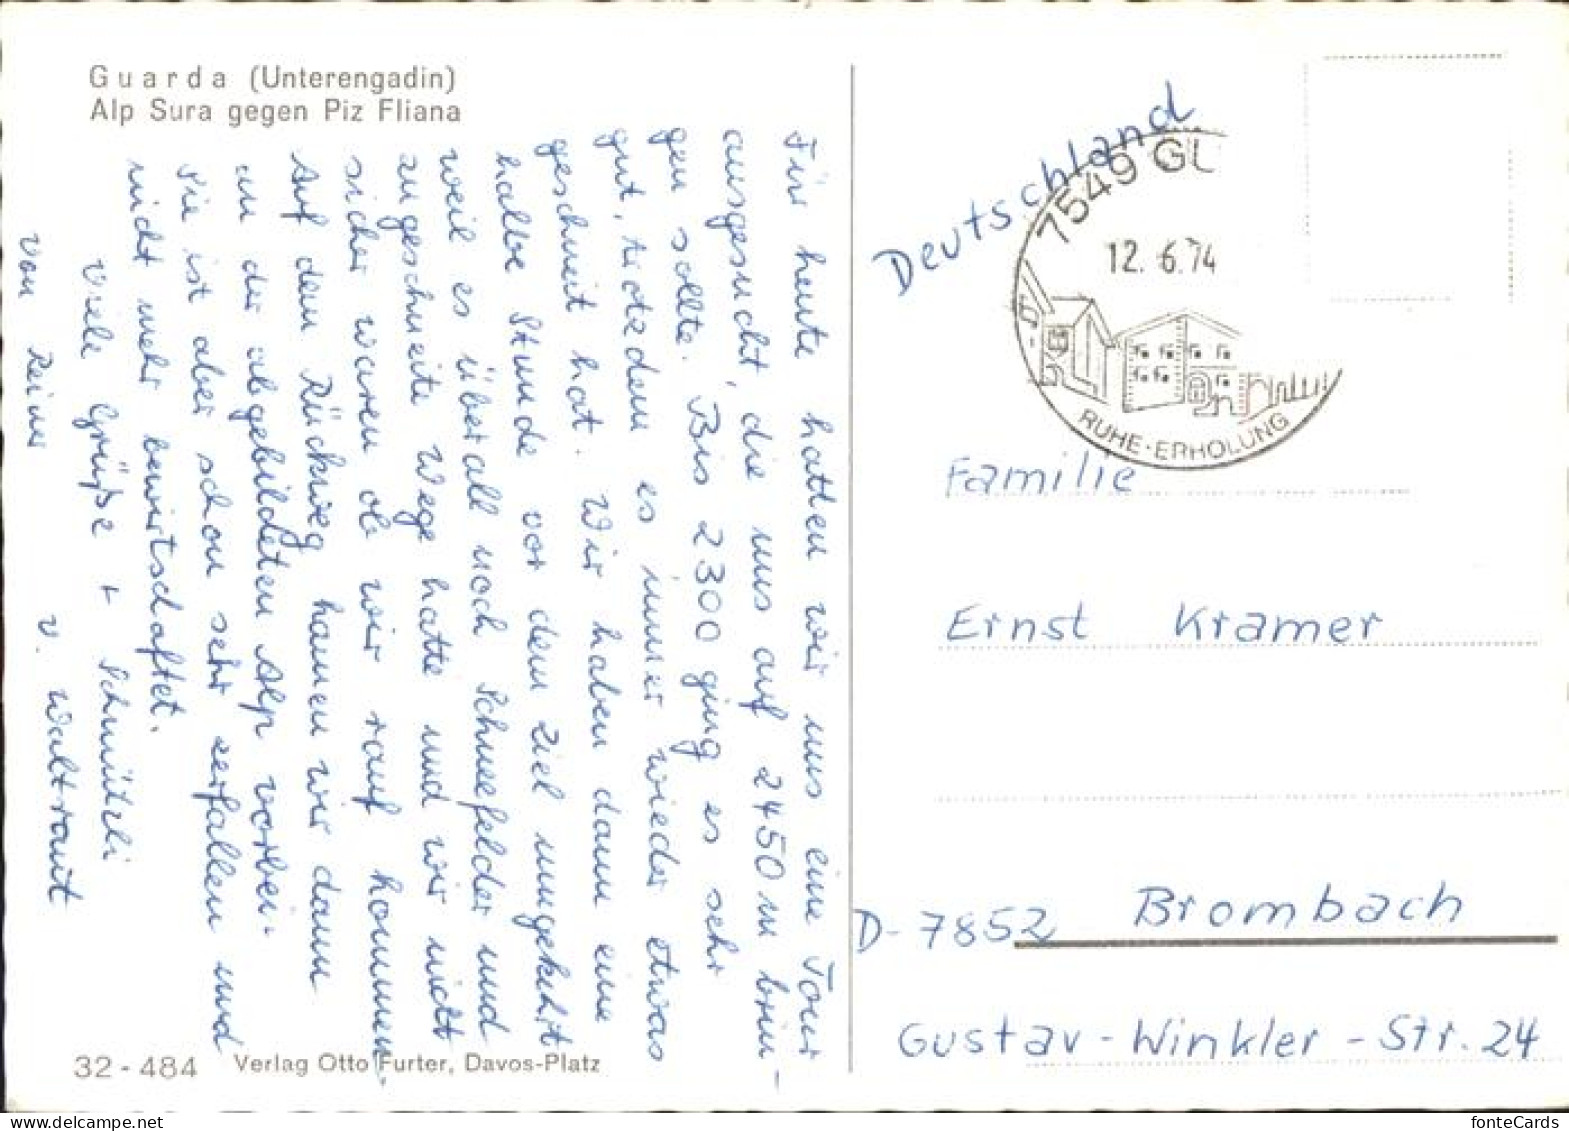 Guarda (Unterengadin)
Alp Sura gegen Piz Fliana
Für heute hatten wir uns eine Tour
ausgesucht, die uns auf 2450 m brin-
gen sollte. Bis 2300 ging es sehr
gut, trotzdem es immer wieder etwas
geschneit hat. Wir haben dann eine
halbe Stunde vor dem Ziel umgekehrt
weil es überall noch Schneefelder und
zugeschneite Wege hatte und wir nicht
sicher waren ob wir rauf kommen.
Auf dem Rückweg kamen wir dann
an der abgebildeten Alp vorbei.
Sie ist aber schon sehr zerfallen und
nicht mehr bewirtschaftet.
Viele Grüße + Schmützli
von Reiner v. Waltraut
32-484 Verlag Otto Furter, Davos-Platz
Deutschland
7549 GU
12.6.74
RUHE·ERHOLUNG
Familie
Ernst Kramer
D-7852 Brombach
Gustav-Winkler-Str. 24
fonteCards